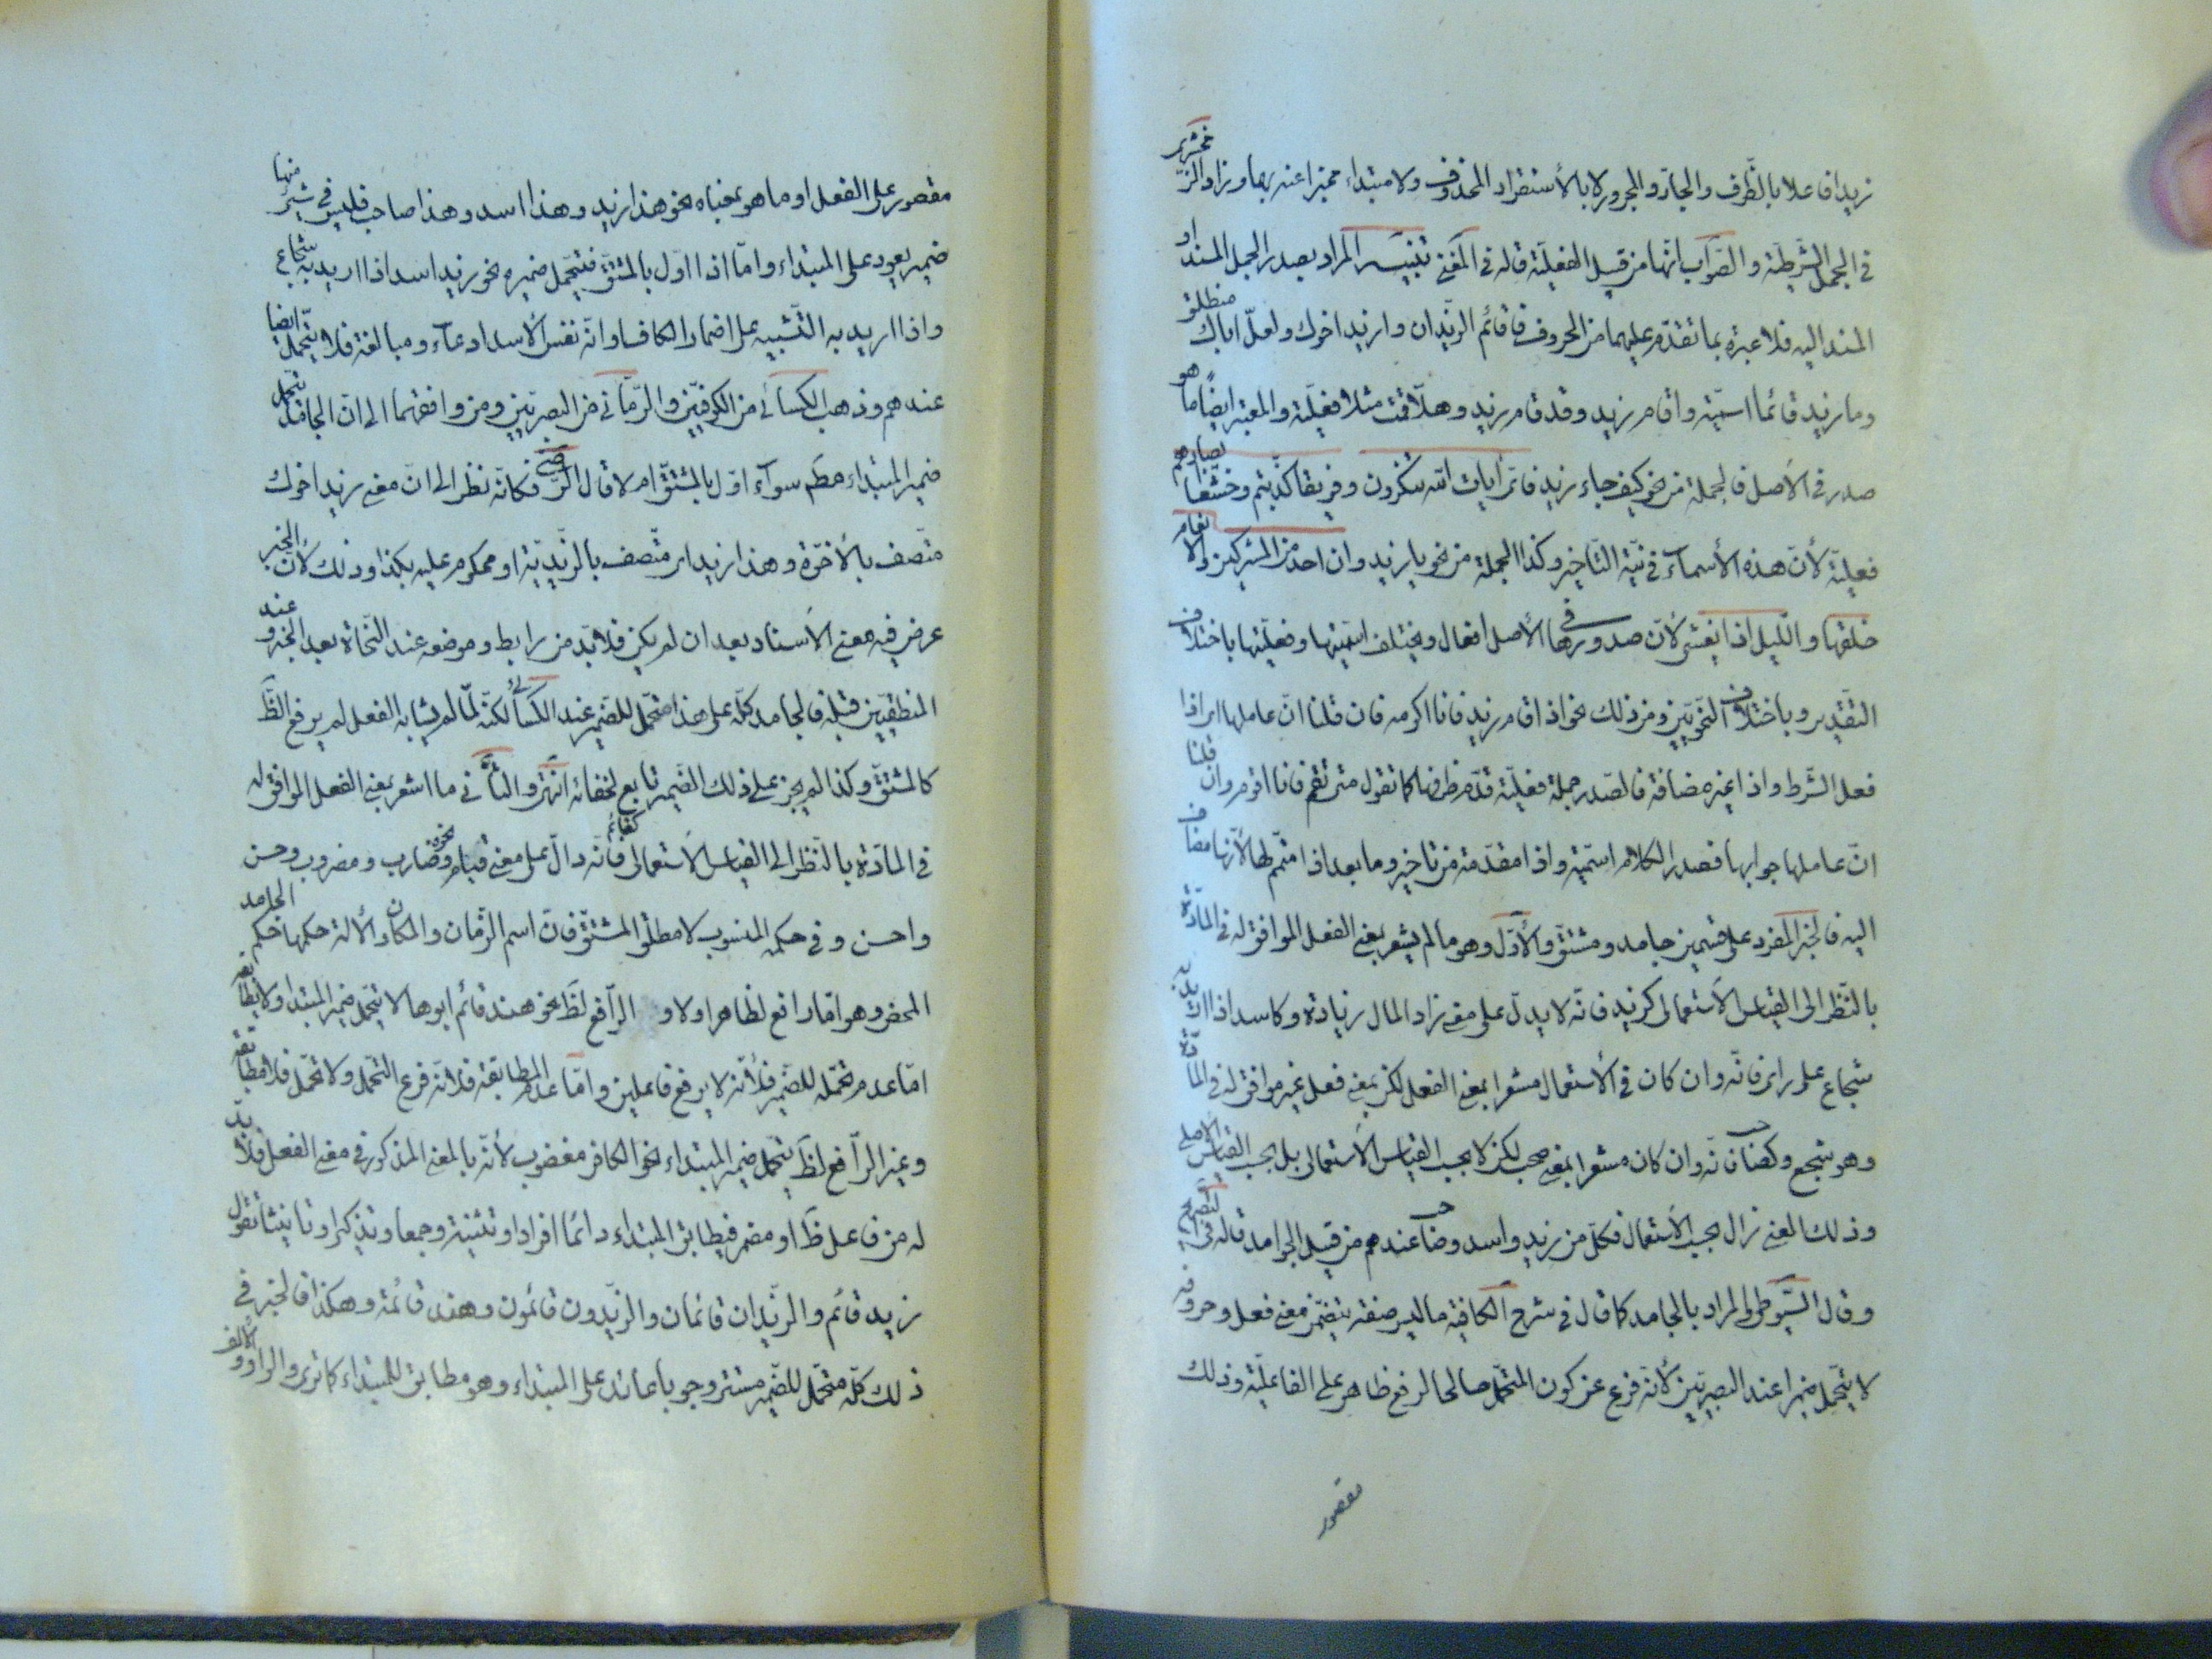 زيدا فاعلا بالظّرف والجارّ والمجرور لا بالأستقرار المحذوف ولا مبتداء مخبرا عنه بهما وزاد الزّمخشرىّ
فى الجمل الشّرطيّة والصّواب انّها من قبيل الفعليّة قاله فى المغنى تنبيه المراد بصدر الجمل المسند او
المسند اليه فلا عبرة بما تقدّم عليهما من الحروف فاقائم الزيدان وازيد اخوك ولعلّ اباك منطلق
وما زيد قائما اسميّة واقام زيد وقد قام زيد وهلّا قمت مثلا فعليّة والمعتبر ايضًا ما هو
صدر فى الأصل فالجملة من نحو كيف جاء زيد فاىّ ايات الله تنكرون وفريقا كذّبتم وخشّعا ابصارهم
فعليّة لأنّ هذه الأسماء فى نيّة التّاخير وكذا الجملة من نحو يا زيد وان احد من المشركين والانعام
خلقها واللّيل اذا يغشى لأنّ صدورها فى الأصل افعال ويختلف اسميّتها وفعليّتها باختلاف
التقدير وباختلاف النّحويّين ومن ذلك نحو اذا قام زيد فانا اكرمه فان قلنا انّ عاملها اى اذا
فعل الشّرط واذا غير مضافة فالصّدر جملة فعليّة قدّم ظرفها كما تقول متى تقم فانا اقوم وان قلنا
انّ عاملها جوابها فصدر الكلام اسميّة واذا مقدّمة من تاخير وما بعد اذا متمّم لها لأنّها مضاف
اليه فالخبر المفرد على قسمين جامد ومشتقّ والأوّل وهو ما لم يشعر بمعنى الفعل الموافق له فى المادّة
بالنّظر الى القياس الأستعمالى كزيد فانّه لا يدلّ على معنى زاد المال زيادة وكاسد اذا اريد به
شجاع على راى فانّه وان كان فى الأستعمال مشعرا بمعنى الفعل لكن بمعنى فعل غير موافق له فى المادّة
وهو شجع وكصاحب فانّه وان كان مشعرا بمعنى صحب لكن لا بحسب القياس الأستعمالى بل بحسب القياس الأصلى
وذلك المعنى زال بحسب الأستعمال فكلّ من زيد واسد وصاحب عندهم من قبيل الجوامد قاله فى التّصريح
وقال السّيوطى المراد بالجامد كما قال فى شرح الكافية ما ليس صفة تتضمّن معنى فعل وحروفه
لا يتحمّل ضميرا عند البصريّين لأنّه فرع عن كون المتحمّل صالحا لرفع ظاهر على الفاعليّة وذلك
مقصور
مقصور على الفعل او ما هو بمعناه نحو هذا زيد وهذا اسد وهذا صاحب فليس فى شىء منها
ضمير يعود على المبتداء وامّا اذا اوّل بالمشتقّ فيتحمّل ضميره نحو زيد اسد اذا اريد به شجاع
واذا اريد به التّشبيه على اضمار الكاف او انّه نفس الأسد ادعاء ومبالغة فلا يتحمّل ايضا
عندهم وذهب الكسائى من الكوفيّين والرّمّانى من البصريّين ومن وافقهما الى انّ الجامد يتحمّل
ضمير المبتداء مطم سواء اوّل بالمشتقّ ام لا قال الرّضىّ فكانّه نظر الى انّ معنى زيد اخوك
متّصف بالأخوّة وهذا زيد اى متّصف بالزّيديّة او محكوم عليه بكذا وذلك لأنّ الخبر
عرض فيه معنى الأسناد بعد ان لم يكن فلا بدّ من رابط وموضعه عند النّحاة بعد الخبر وعند
المنطقيّين قبله فالجامد كلّه على هذا متحمّل للضّمير عند الكسائى لكنّه لمّا لم يشابه الفعل لم يرفع الظّ
كالمشتقّ وكذا لم يجز على ذلك الضّمير تابع لخفائه انتهى والثّانى ما اشعر بمعنى الفعل الموافق له
فى المادّة بالنّظر الى القياس الأستعمالى كقائم فانّه دالّ على معنى قيام ونحوه ضارب ومضروب وحسن
واحسن وفى حكمه المنسوب لا مطلق المشتقّ فانّ اسم الزّمان والمكان والألة حكمها حكم الجامد
المحض وهو امّا رافع لظاهر اولا و الرّافع لظ نحو هند قائم ابوها لا يتحمّل ضمير المبتدا ولا يطابقه
امّا عدم تحمّله للضّمير فلأنّه لا يرفع فاعلين وامّا عدم المطابقة فلانّه فرع التّحمّل ولا تحمّل فلا مطابقة
وغير الرّافع لظ يتحمّل ضمير المبتداء نحو الكافر مغضوب لأنّه بالمعنى المذكور فى معنى الفعل فلا بدّ
له من فاعل ظ او مضمر فيطابق المبتداء دائما افرادا وتثنية وجمعا وتذكيرا وتانيثا تقول
زيد قائم والزّيدان قائمان والزّيدون قائمون وهند قائمة وهكذا فالخبر فى
ذلك كلّه متحمّل للضّمير مستتر وجوبا عائد على المبتداء وهو مطابق للمبتداء كما ترى والواو والألف